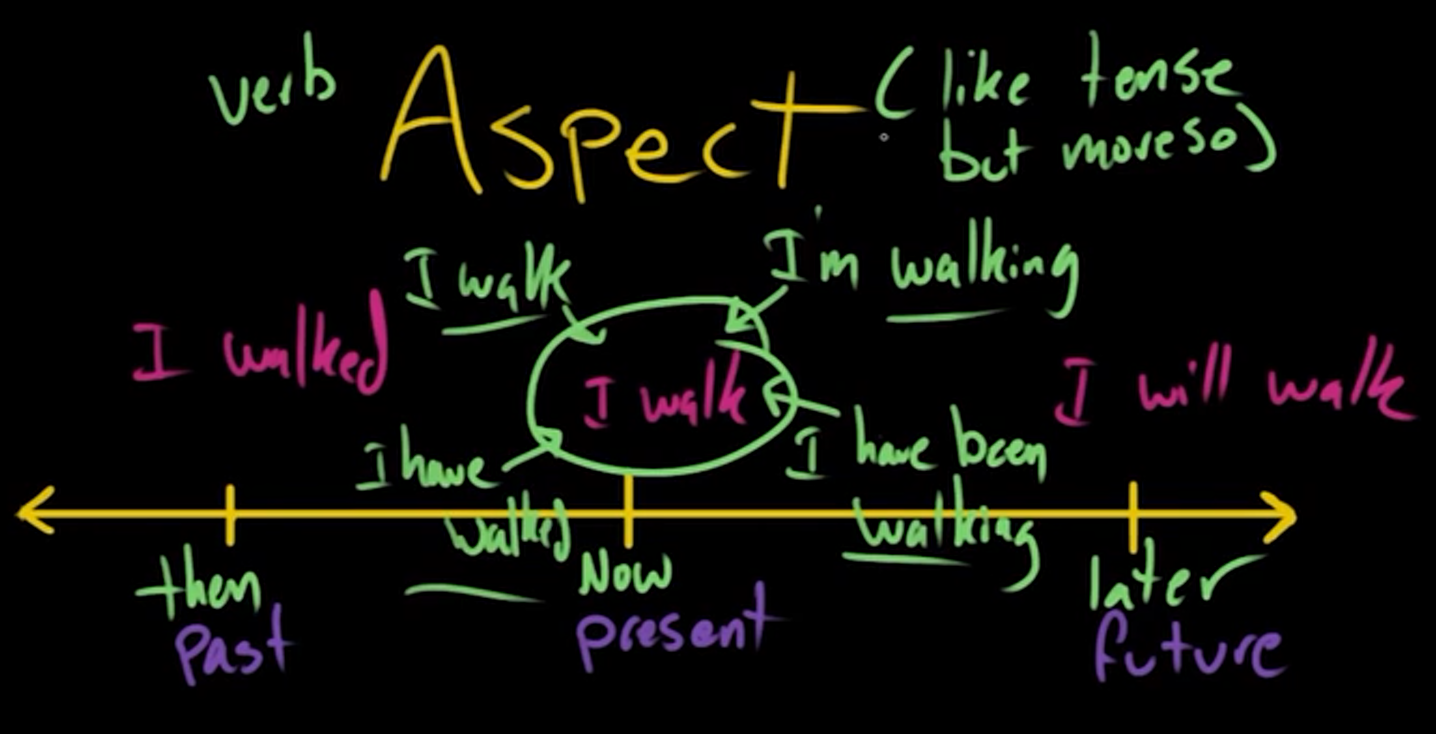 verb Aspect (like tense
but moreso)
I walk
I'm walking
I walked
I walk
I will walk
I have
walked
I have been
walking
then
Now
later
past
present
future